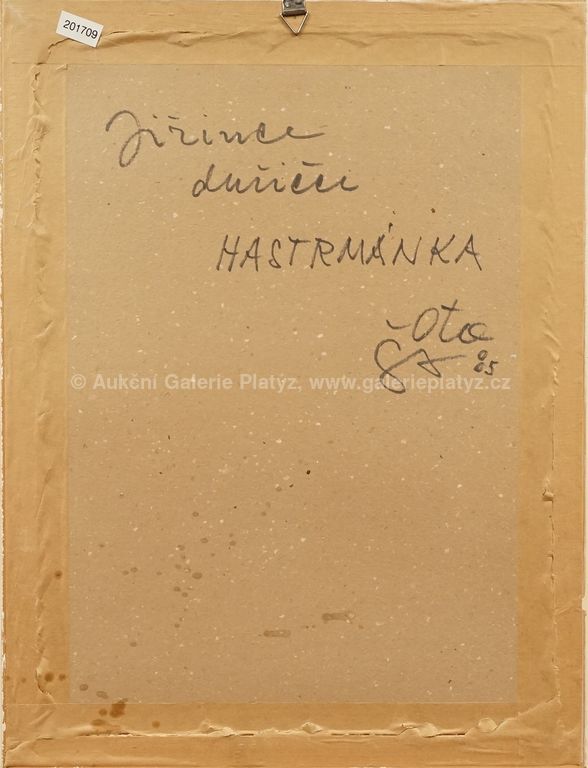 201709
Jiřince
dušičce
HASTRMÁNKA
Ota
05
© Aukční Galerie Platýz, www.galerieplatyz.cz